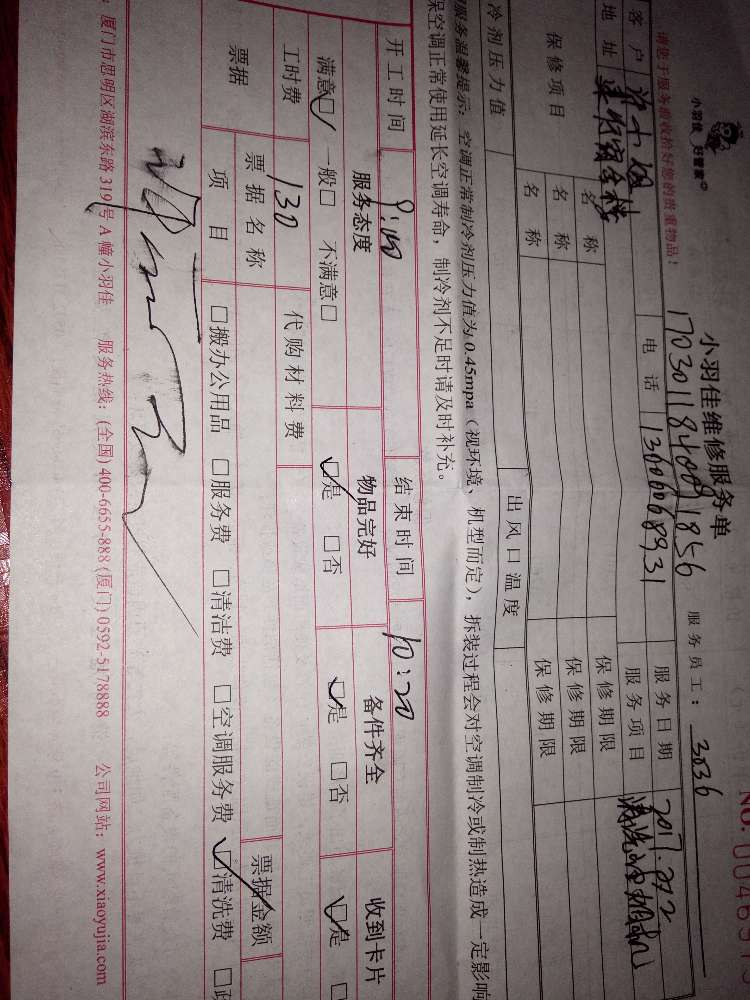 小羽佳 好管家
请您于服务前收拾好您的贵重物品！
小羽佳维修服务单
服务员工： 3036
客 户
电 话
服务日期
地 址
服务项目
保修项目
名 称
保修期限
名 称
保修期限
名 称
保修期限
冷剂压力值
出风口温度
服务温馨提示：空调正常制冷剂压力值为0.45mpa（视环境、机型而定），拆装过程会对空调制冷或制热造成一定影响
保空调正常使用延长空调寿命，制冷剂不足时请及时补充。
开工时间 9:00 结束时间 10:20
服务态度 物品完好 备件齐全 收到卡片
满意□ 一般□ 不满意□ □是 □否 □是 □否 □是 □
工时费 130 代购材料费
票据 票据名称 票据金额
项 目 □搬办公用品 □服务费 □清洁费 □空调服务费 □清洗费 □
：厦门市思明区湖滨东路319号A幢小羽佳 服务热线：(全国) 400-6655-888 (厦门) 0592-5178888 公司网站：www.xiaoyujia.com